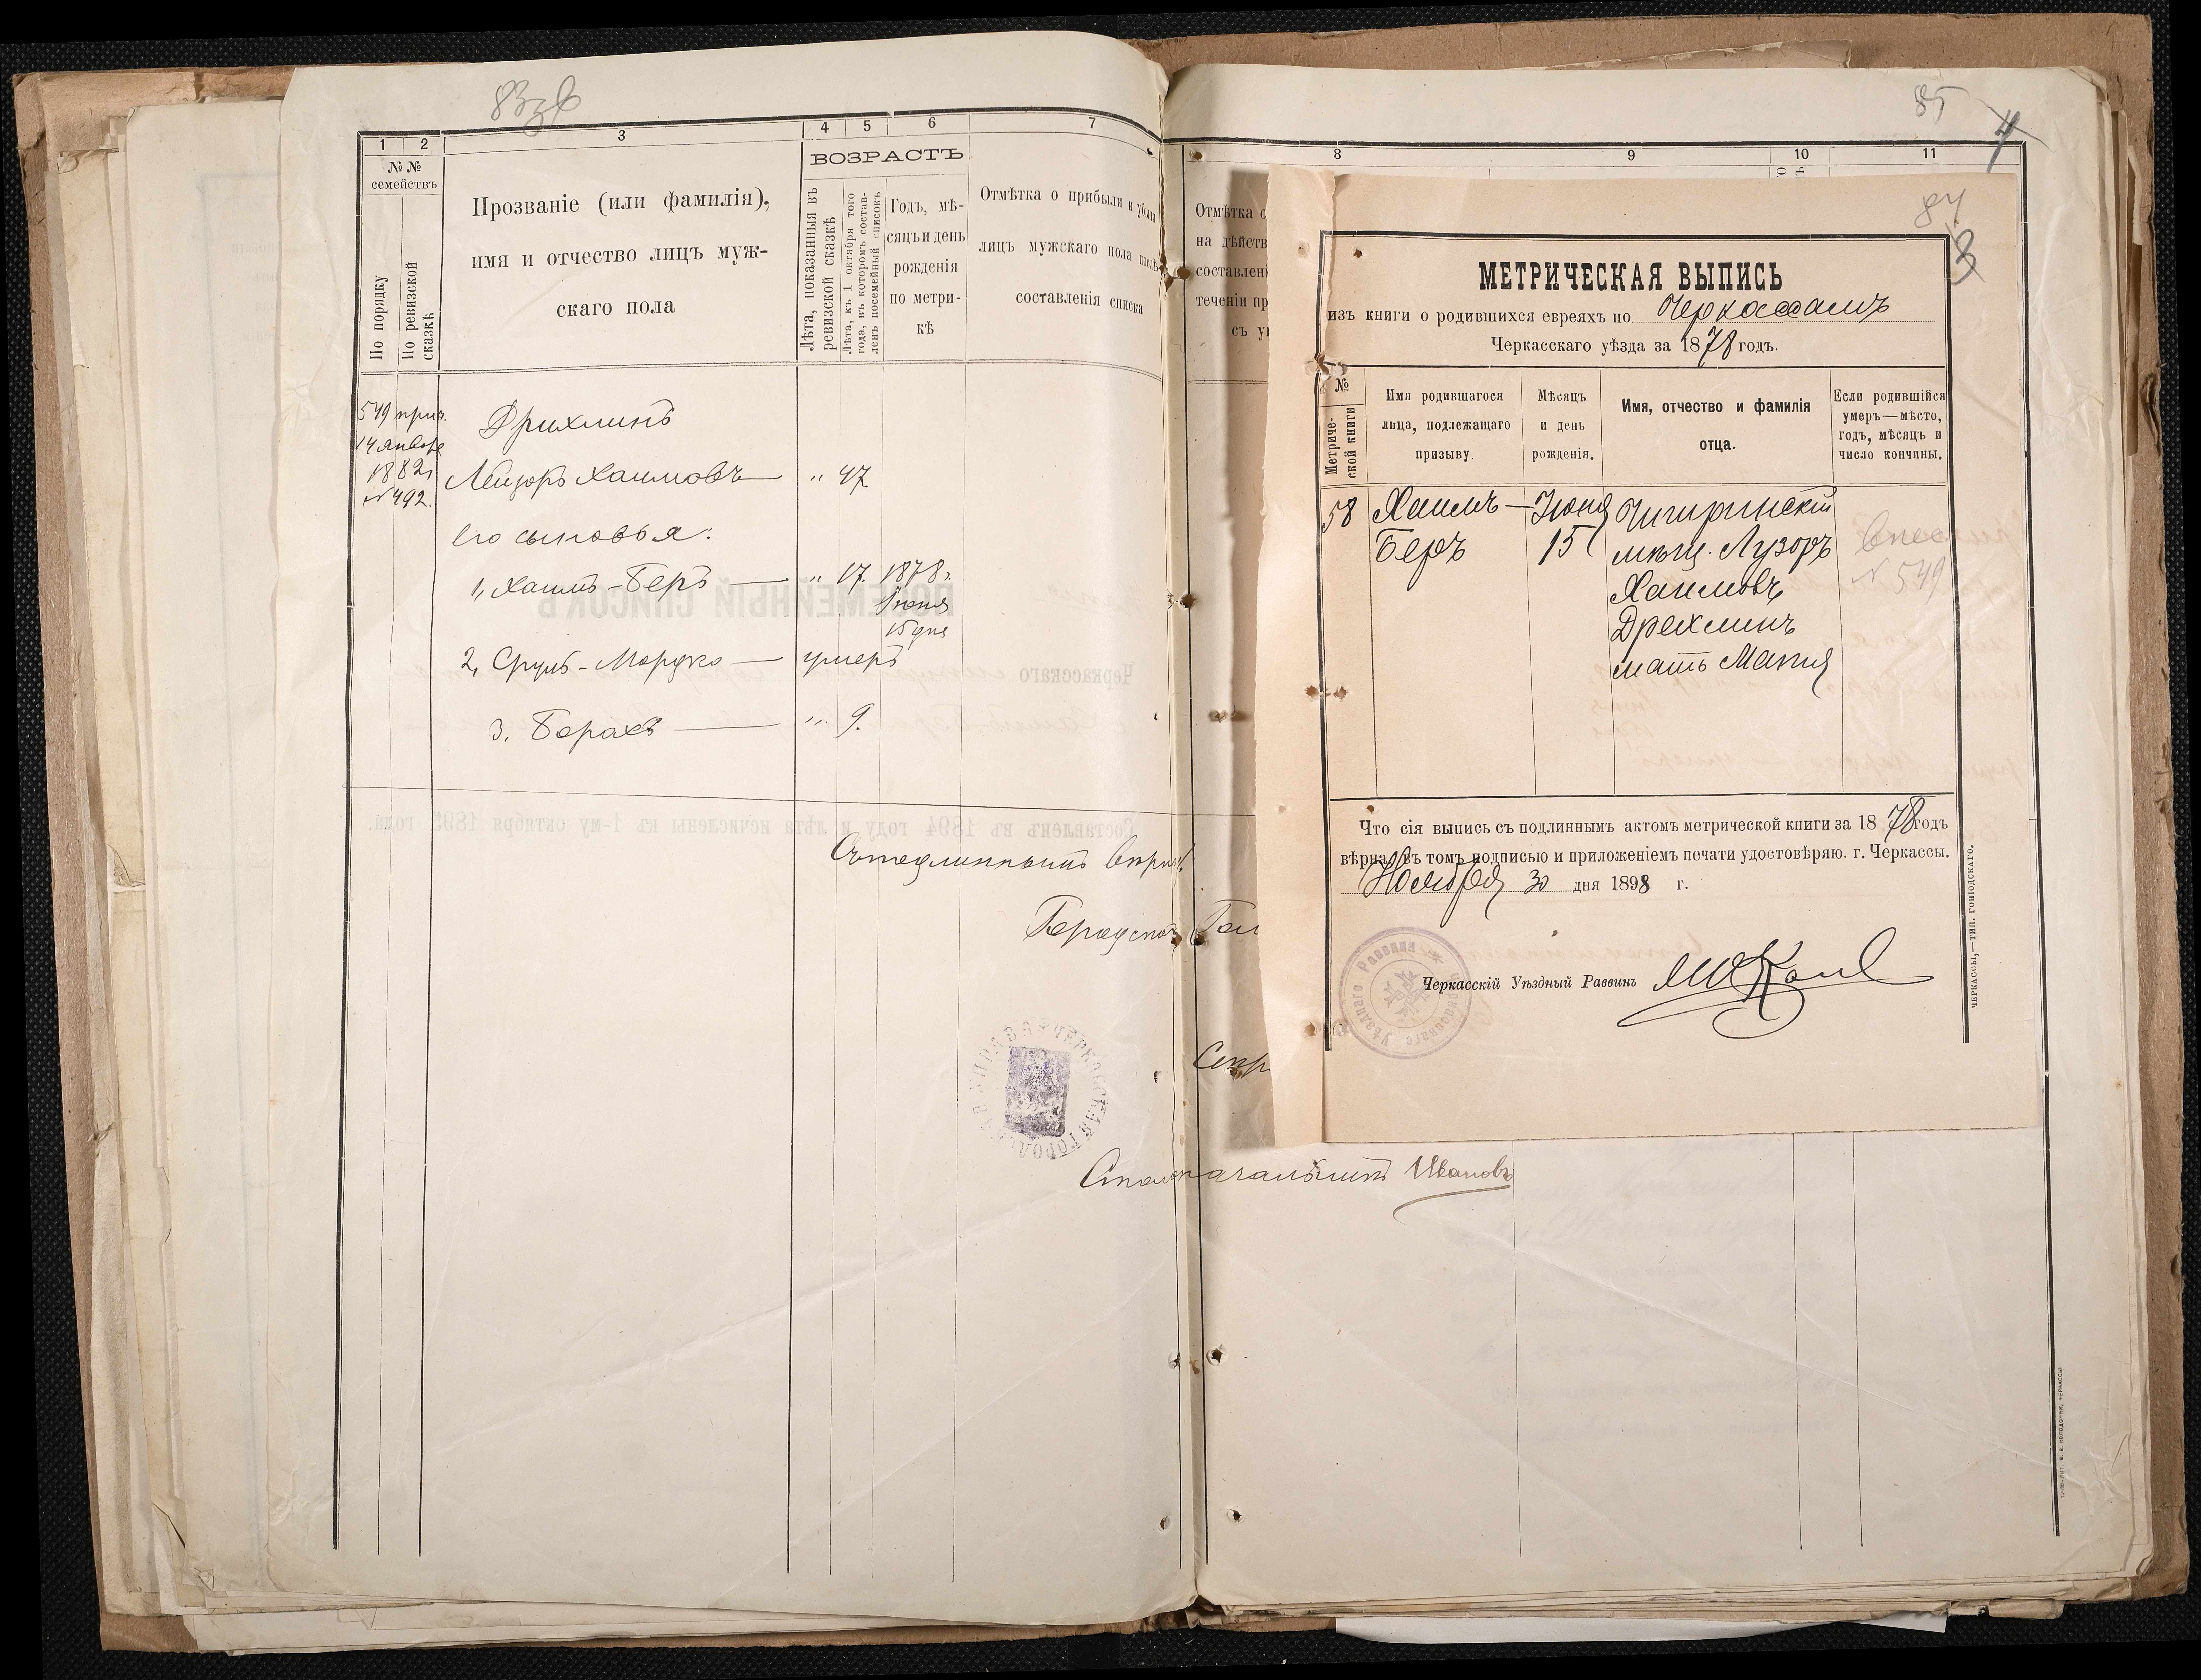 83 об
1 2 3 4 5 6 7
№ № семействъ
По порядку
По ревизской сказкѣ
Прозваніе (или фамилія),
имя и отчество лицъ муж-
скаго пола
ВОЗРАСТЪ
Лѣта, показанныя въ
ревизской сказкѣ
Лѣта, къ 1 октября того
года, въ которомъ состав-
ленъ посемейный списокъ
Годъ, мѣ-
сяцъ и день
рожденія
по метри-
кѣ
Отмѣтка о прибыли и убыли
лицъ мужскаго пола послѣ
составленія списка
549 прич.
14 января
1882 г.
№ 492.
Дрихлинъ
Лейзоръ Хаимовъ — " 47
его сыновья:
1, Хаимъ-Беръ — " 17. 1878 г.
Іюня
15 дня
2, Сруль-Мордко — умеръ
3. Борахъ — " 9.
Съ подлиннымъ вѣрно:
Городской Гол
Секр
ЧЕРКАССКАЯ ГОРОД УПРАВА
Столоначальникъ Ивановъ
85
4
8 9 10 11
Отмѣтка о
на дѣйств
составлені
теченіи пр
съ у
84
3
МЕТРИЧЕСКАЯ ВЫПИСЬ
изъ книги о родившихся евреяхъ по Черкассамъ
Черкасскаго уѣзда за 1878 годъ.
№
Метриче-
ской книги
Имя родившагося
лица, подлежащаго
призыву.
Мѣсяцъ
и день
рожденія.
Имя, отчество и фамилія
отца.
Если родившійся
умеръ—мѣсто,
годъ, мѣсяцъ и
число кончины.
58 Хаимъ — Іюня Чигиринскій
Беръ 15 мѣщ. Лузоръ
Хаимовъ
Дрехлинъ
мать Маня
внес
№ 549
Что сія выпись съ подлиннымъ актомъ метрической книги за 1878 годъ
вѣрна, въ томъ подписью и приложеніемъ печати удостовѣряю. г. Черкассы.
Ноября 30 дня 1898 г.
Черкасскій Уѣздный Раввинъ
Черкасскаго Уѣзднаго Раввина
ЧЕРКАССЫ,—ТИП. ГОПОДСКАГО.
ПОСЕМЕЙНЫЙ СПИСОКЪ
Черкасскаго
Составленъ въ 1894 году и лѣта исчислены къ 1-му октября 1895 года.